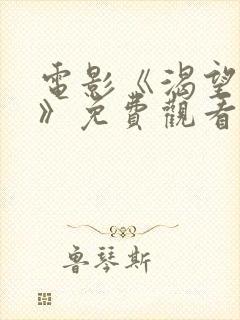 電影《渴望
》免費觀看
魯琴斯